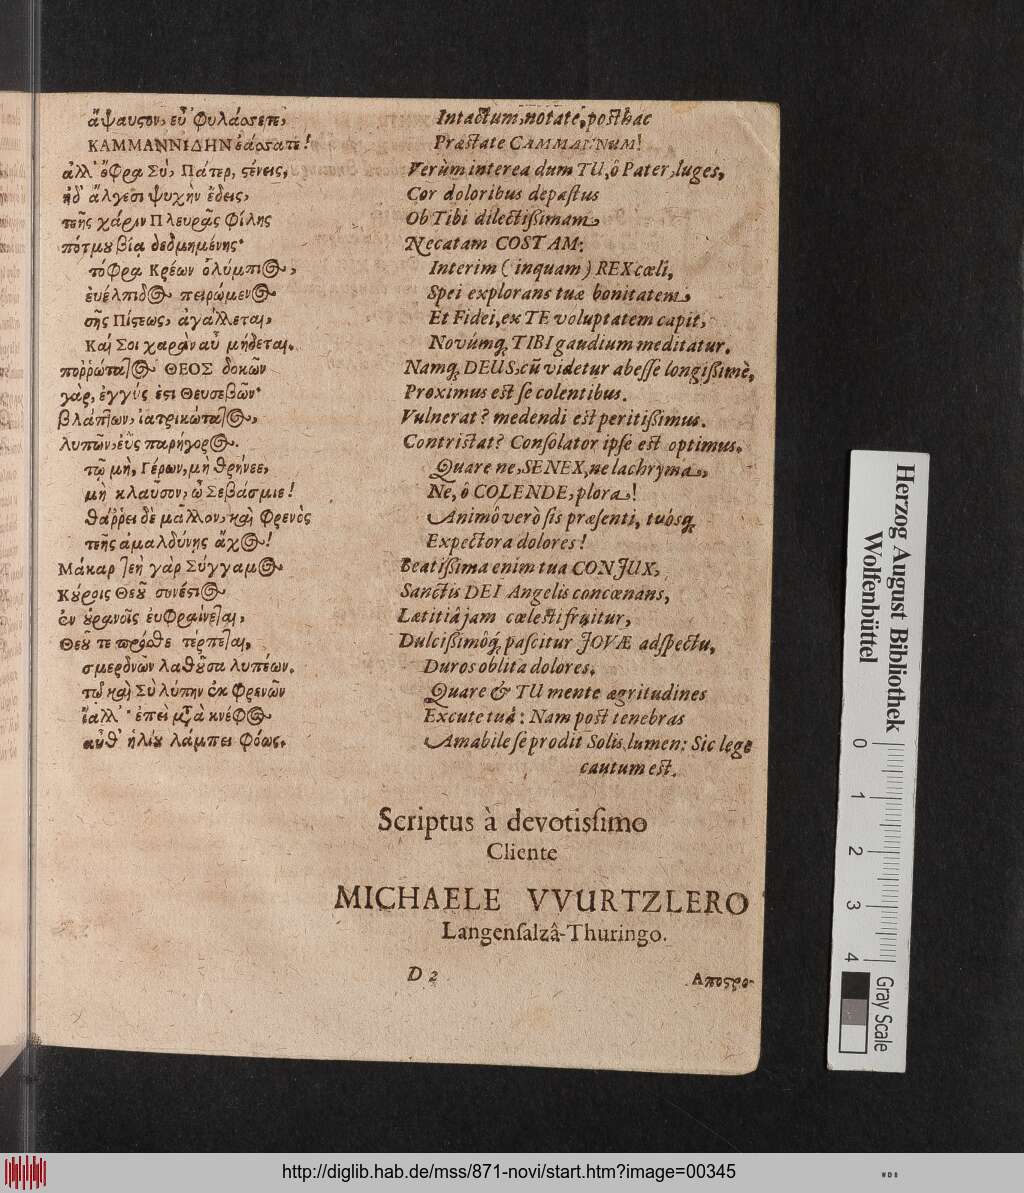 ἄψαυςον, εὖ φυλάσσετε,
ΚΑΜΜΑΝΝΙΔΗΝ ἐάσσατε!
ἀλλ' ὄφρα Σὺ, Πάτερ, ςένεις,
ἠδ' ἄλγεσι ψυχὴν ἔδεις,
τεῆς χάριν Πλευρᾶς Φίλης
πότμου βίᾳ δεδμημένης·
τόφρα Κρέων ὀλύμπιος,
ἐυέλπιδος πειρώμενος
σῆς Πίςεως, ἀγάλλεται,
Καί Σοι χαρὰν αὖ μήδεται.
ποῤῥώτατος ΘΕΟΣ δοκῶν
γὰρ, ἐγγύς ἐςι Θευσεβῶν·
βλάπτων, ἰατρικώτατος,
λυπῶν, ἐῢς παρήγορος.
τῷ μὴ, Γέρων, μὴ θρήνεε,
μὴ κλαῦσον, ὦ Σεβάσμιε!
θάῤῥει δὲ μᾶλλον, καὶ Φρενὸς
τεῆς ἀμαλδύνῃς ἄχος!
Μάκαρ τεὴ γὰρ Σύγγαμος
Κούροις Θεοῦ συνέςιος
ἐν οὐρανοῖς ἐυφραίνεται,
Θεοῦ τε πρόσθε τέρπεται,
σμερδνῶν λαθοῦσα λυπέων.
τῶ καὶ Σὺ λύπην ἐκ Φρενῶν
ἴαλλ'· ἐπεὶ μετὰ κνέφος
αὖθ' ἡλίου λάμπει Φόως.
Intactum, notate, posthac
Præstate CAMMANNUM!
Verùm interea dum TU, ô Pater, luges,
Cor doloribus depastus
Ob Tibi dilectißimam,
Necatam COSTAM:
Interim (inquam) REX cœli,
Spei explorans tuæ bonitatem,
Et Fidei, ex TE voluptatem capit,
Novúmq; TIBI gaudium meditatur.
Namq; DEUS, cũ videtur abesse longißimè,
Proximus est se colentibus.
Vulnerat? medendi est peritißimus.
Contristat? Consolator ipse est optimus.
Quare ne, SENEX, ne lachryma,
Ne, ô COLENDE, plora!
Animô verò sis præsenti, tuósq;
Expectora dolores!
Beatißima enim tua CONJUX,
Sanctis DEI Angelis concœnans,
Lætitiâ jam cœlesti fruitur,
Dulcißimôq́; pascitur JOVÆ adspectu,
Duros oblita dolores.
Quare & TU mente ægritudines
Excute tuâ: Nam post tenebras
Amabile se prodit Solis lumen: Sic lege
cautum est.
Scriptus à devotissimo
Cliente
MICHAELE VVURTZLERO
Langensalzâ-Thuringo.
D 2
Αποςρο-
Herzog August Bibliothek
Wolfenbüttel
0 1 2 3 4
Gray Scale
http://diglib.hab.de/mss/871-novi/start.htm?image=00345